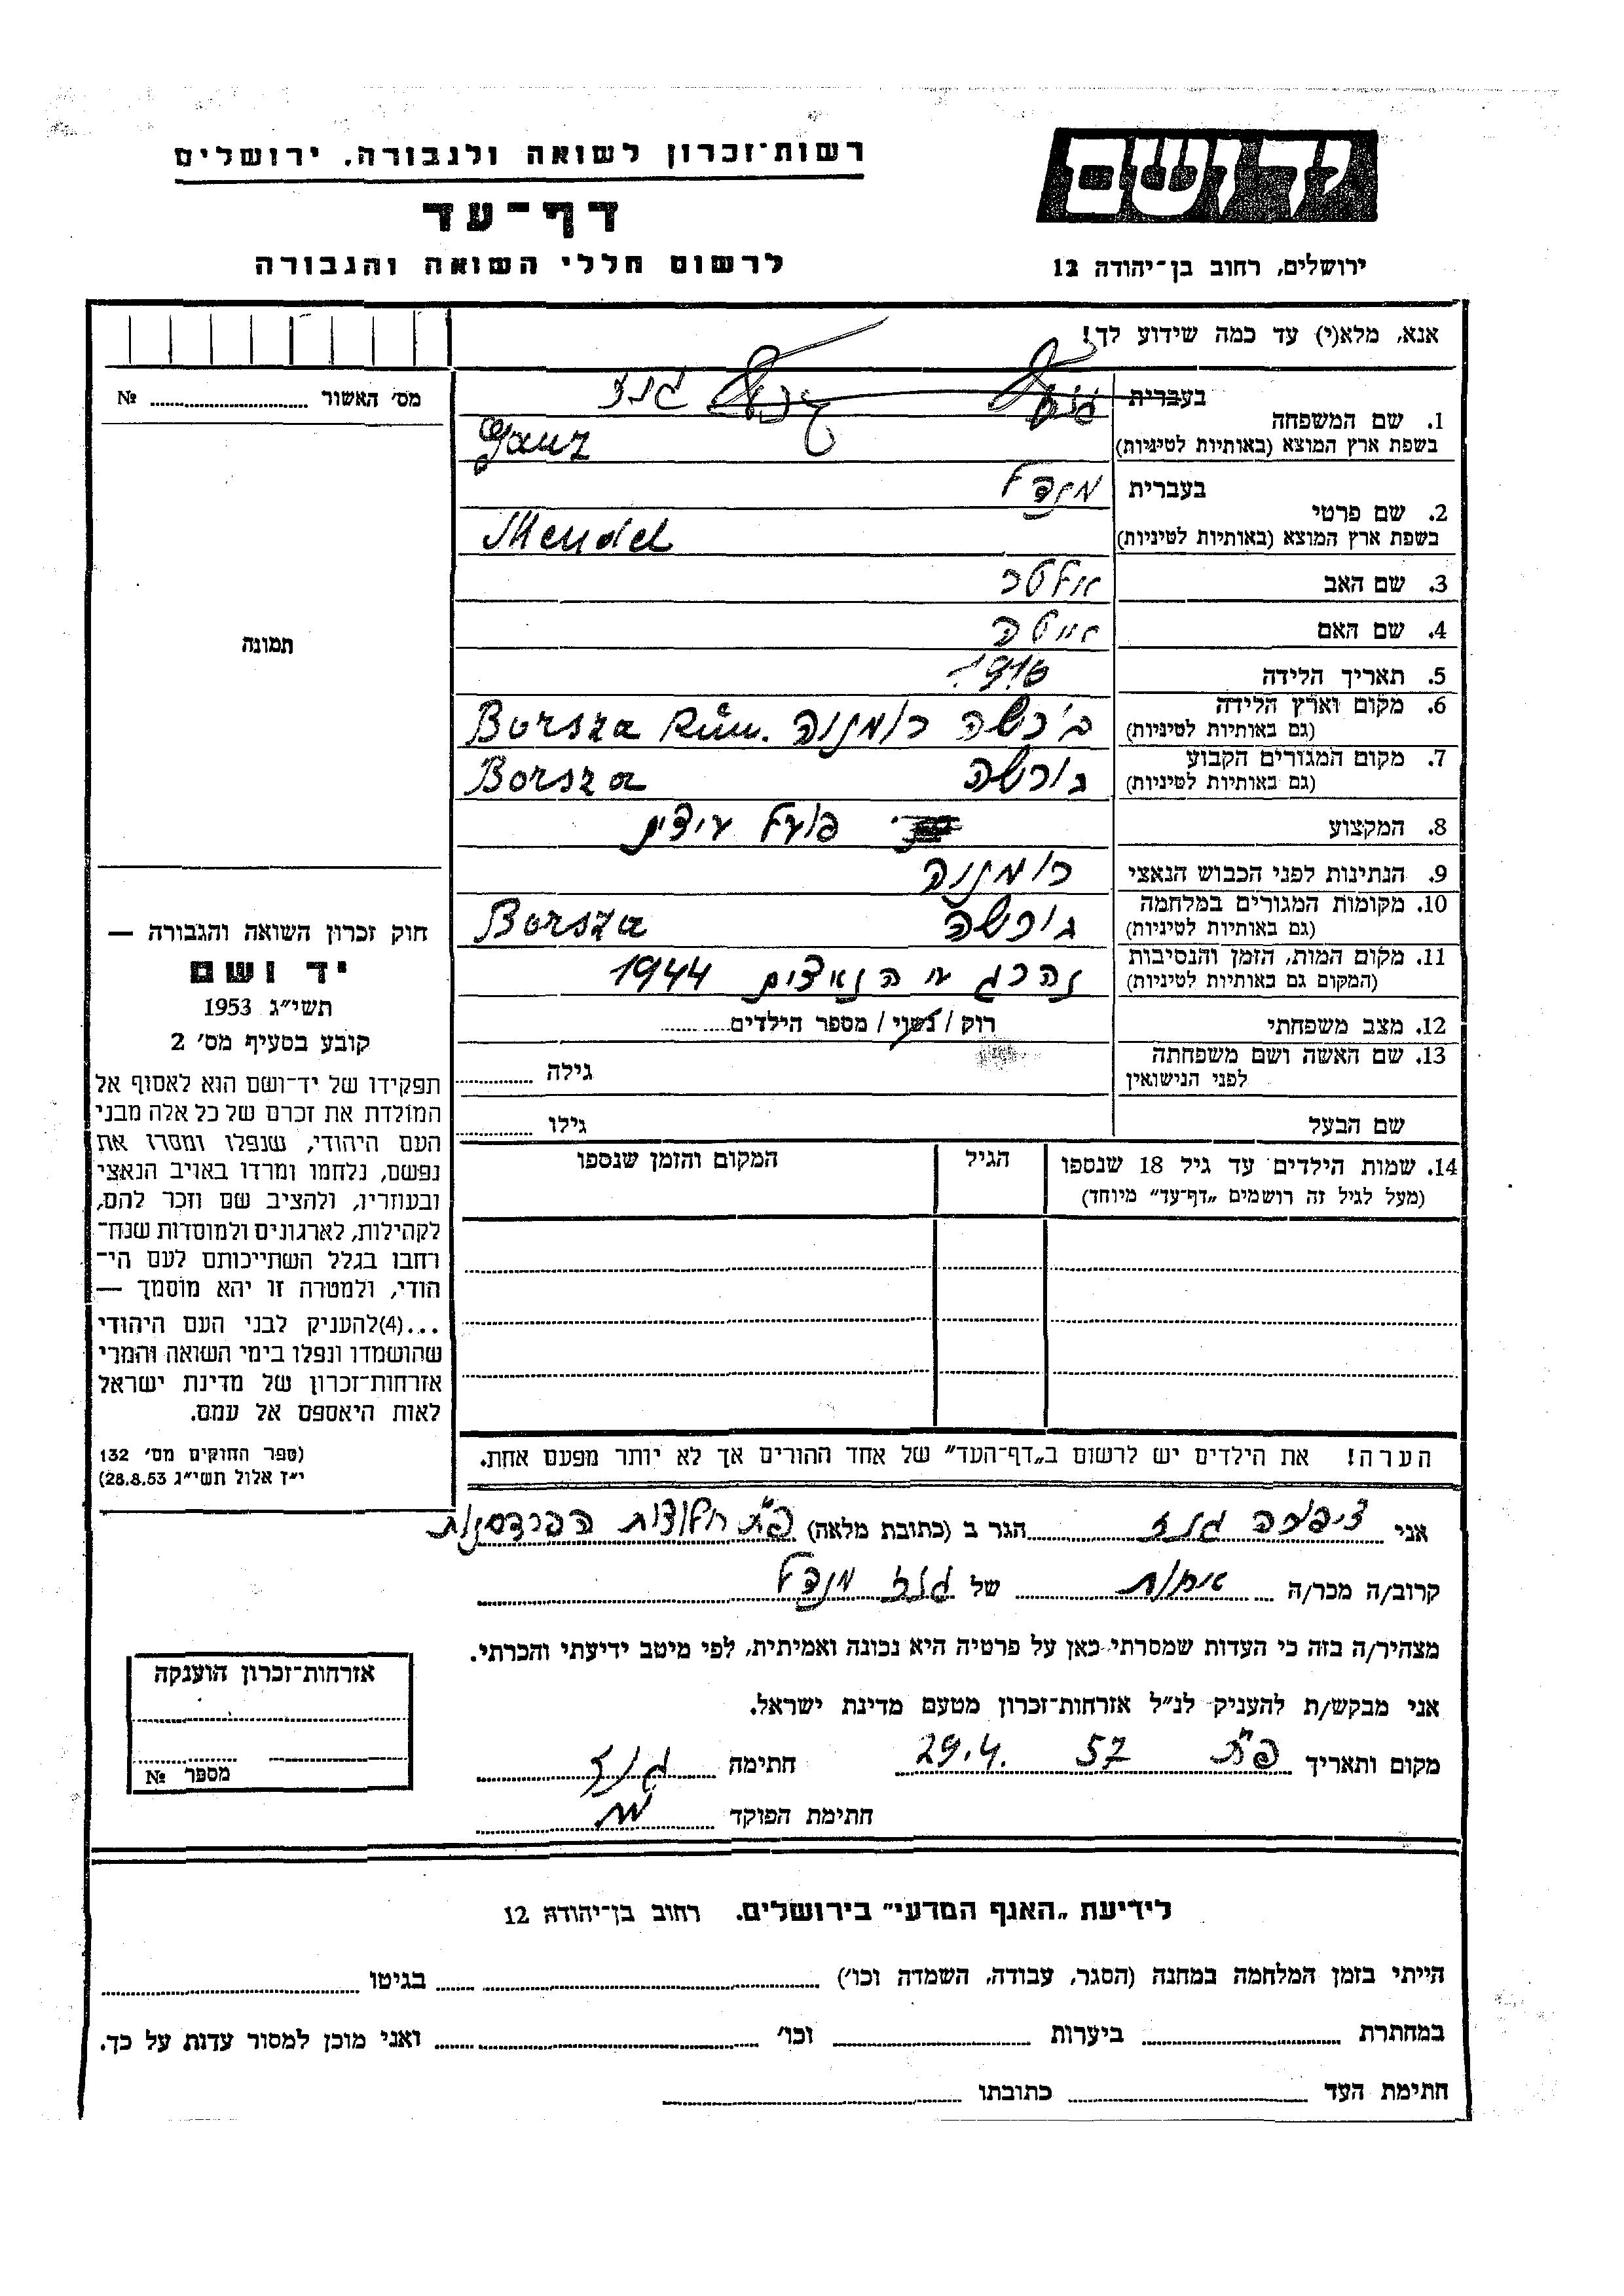 יד ושם
רשות־זכרון לשואה ולגבורה, ירושלים
דף־עד
לרשום חללי השואה והגבורה
ירושלים, רחוב בן־יהודה 12
אנא, מלא(י) עד כמה שידוע לך!
מס׳ האשור №
1. שם המשפחה
בעברית גנז
בשפת ארץ המוצא (באותיות לטיניות) Ganz
2. שם פרטי
בעברית מנדל
בשפת ארץ המוצא (באותיות לטיניות) Mendel
3. שם האב אלטר
4. שם האם
5. תאריך הלידה
6. מקום וארץ הלידה
(גם באותיות לטיניות) רומניה Borsza Rum.
7. מקום המגורים הקבוע
(גם באותיות לטיניות) בורשה Borsza
8. המקצוע פועל
9. הנתינות לפני הכבוש הנאצי רומניה
10. מקומות המגורים במלחמה
(גם באותיות לטיניות) בורשה Borsza
11. מקום המות, הזמן והנסיבות
(המקום גם באותיות לטיניות) נהרג ע הנאצים 1944
12. מצב משפחתי רוק / נשוי / מספר הילדים
13. שם האשה ושם משפחתה
לפני הנישואין גילה
שם הבעל גילו
14. שמות הילדים עד גיל 18 שנספו הגיל המקום והזמן שנספו
(מעל לגיל זה רושמים „דף־עד” מיוחד)
הערה! את הילדים יש לרשום ב„דף־העד” של אחד ההורים אך לא יותר מפעם אחת.
תמונה
חוק זכרון השואה והגבורה —
יד ושם
תשי״ג 1953
קובע בסעיף מס׳ 2
תפקידו של יד־ושם הוא לאסוף אל
המולדת את זכרם של כל אלה מבני
העם היהודי, שנפלו ומסרו את
נפשם, נלחמו ומרדו באויב הנאצי
ובעוזריו, ולהציב שם וזכר להם,
לקהילות, לארגונים ולמוסדות שנח־
רחבו בגלל השתייכותם לעם הי־
הודי, ולמטרה זו יהא מוסמך —
...(4)להעניק לבני העם היהודי
שהושמדו ונפלו בימי השואה והמרי
אזרחות־זכרון של מדינת ישראל
לאות היאספם אל עמם.
(ספר החוקים מס׳ 132
י״ז אלול תשי״ג 28.8.53)
אני ציפורה גנז הגר ב (כתובת מלאה) פ״ת חלוצות הפרדסנות
קרוב/ה מכר/ה אחות של גנז מנדל
מצהיר/ה בזה כי העדות שמסרתי כאן על פרטיה היא נכונה ואמיתית, לפי מיטב ידיעתי והכרתי.
אני מבקש/ת להעניק לנ״ל אזרחות־זכרון מטעם מדינת ישראל.
מקום ותאריך פ״ת 29.4. 57 חתימה גנז
חתימת הפוקד
אזרחות־זכרון הוענקה
מספר №
לידיעת „האגף המדעי” בירושלים. רחוב בן־יהודה 12
הייתי בזמן המלחמה במחנה (הסגר, עבודה, השמדה וכו׳) בגיטו
במחתרת ביערות וכו׳ ואני מוכן למסור עדות על כך.
חתימת העד כתובתו